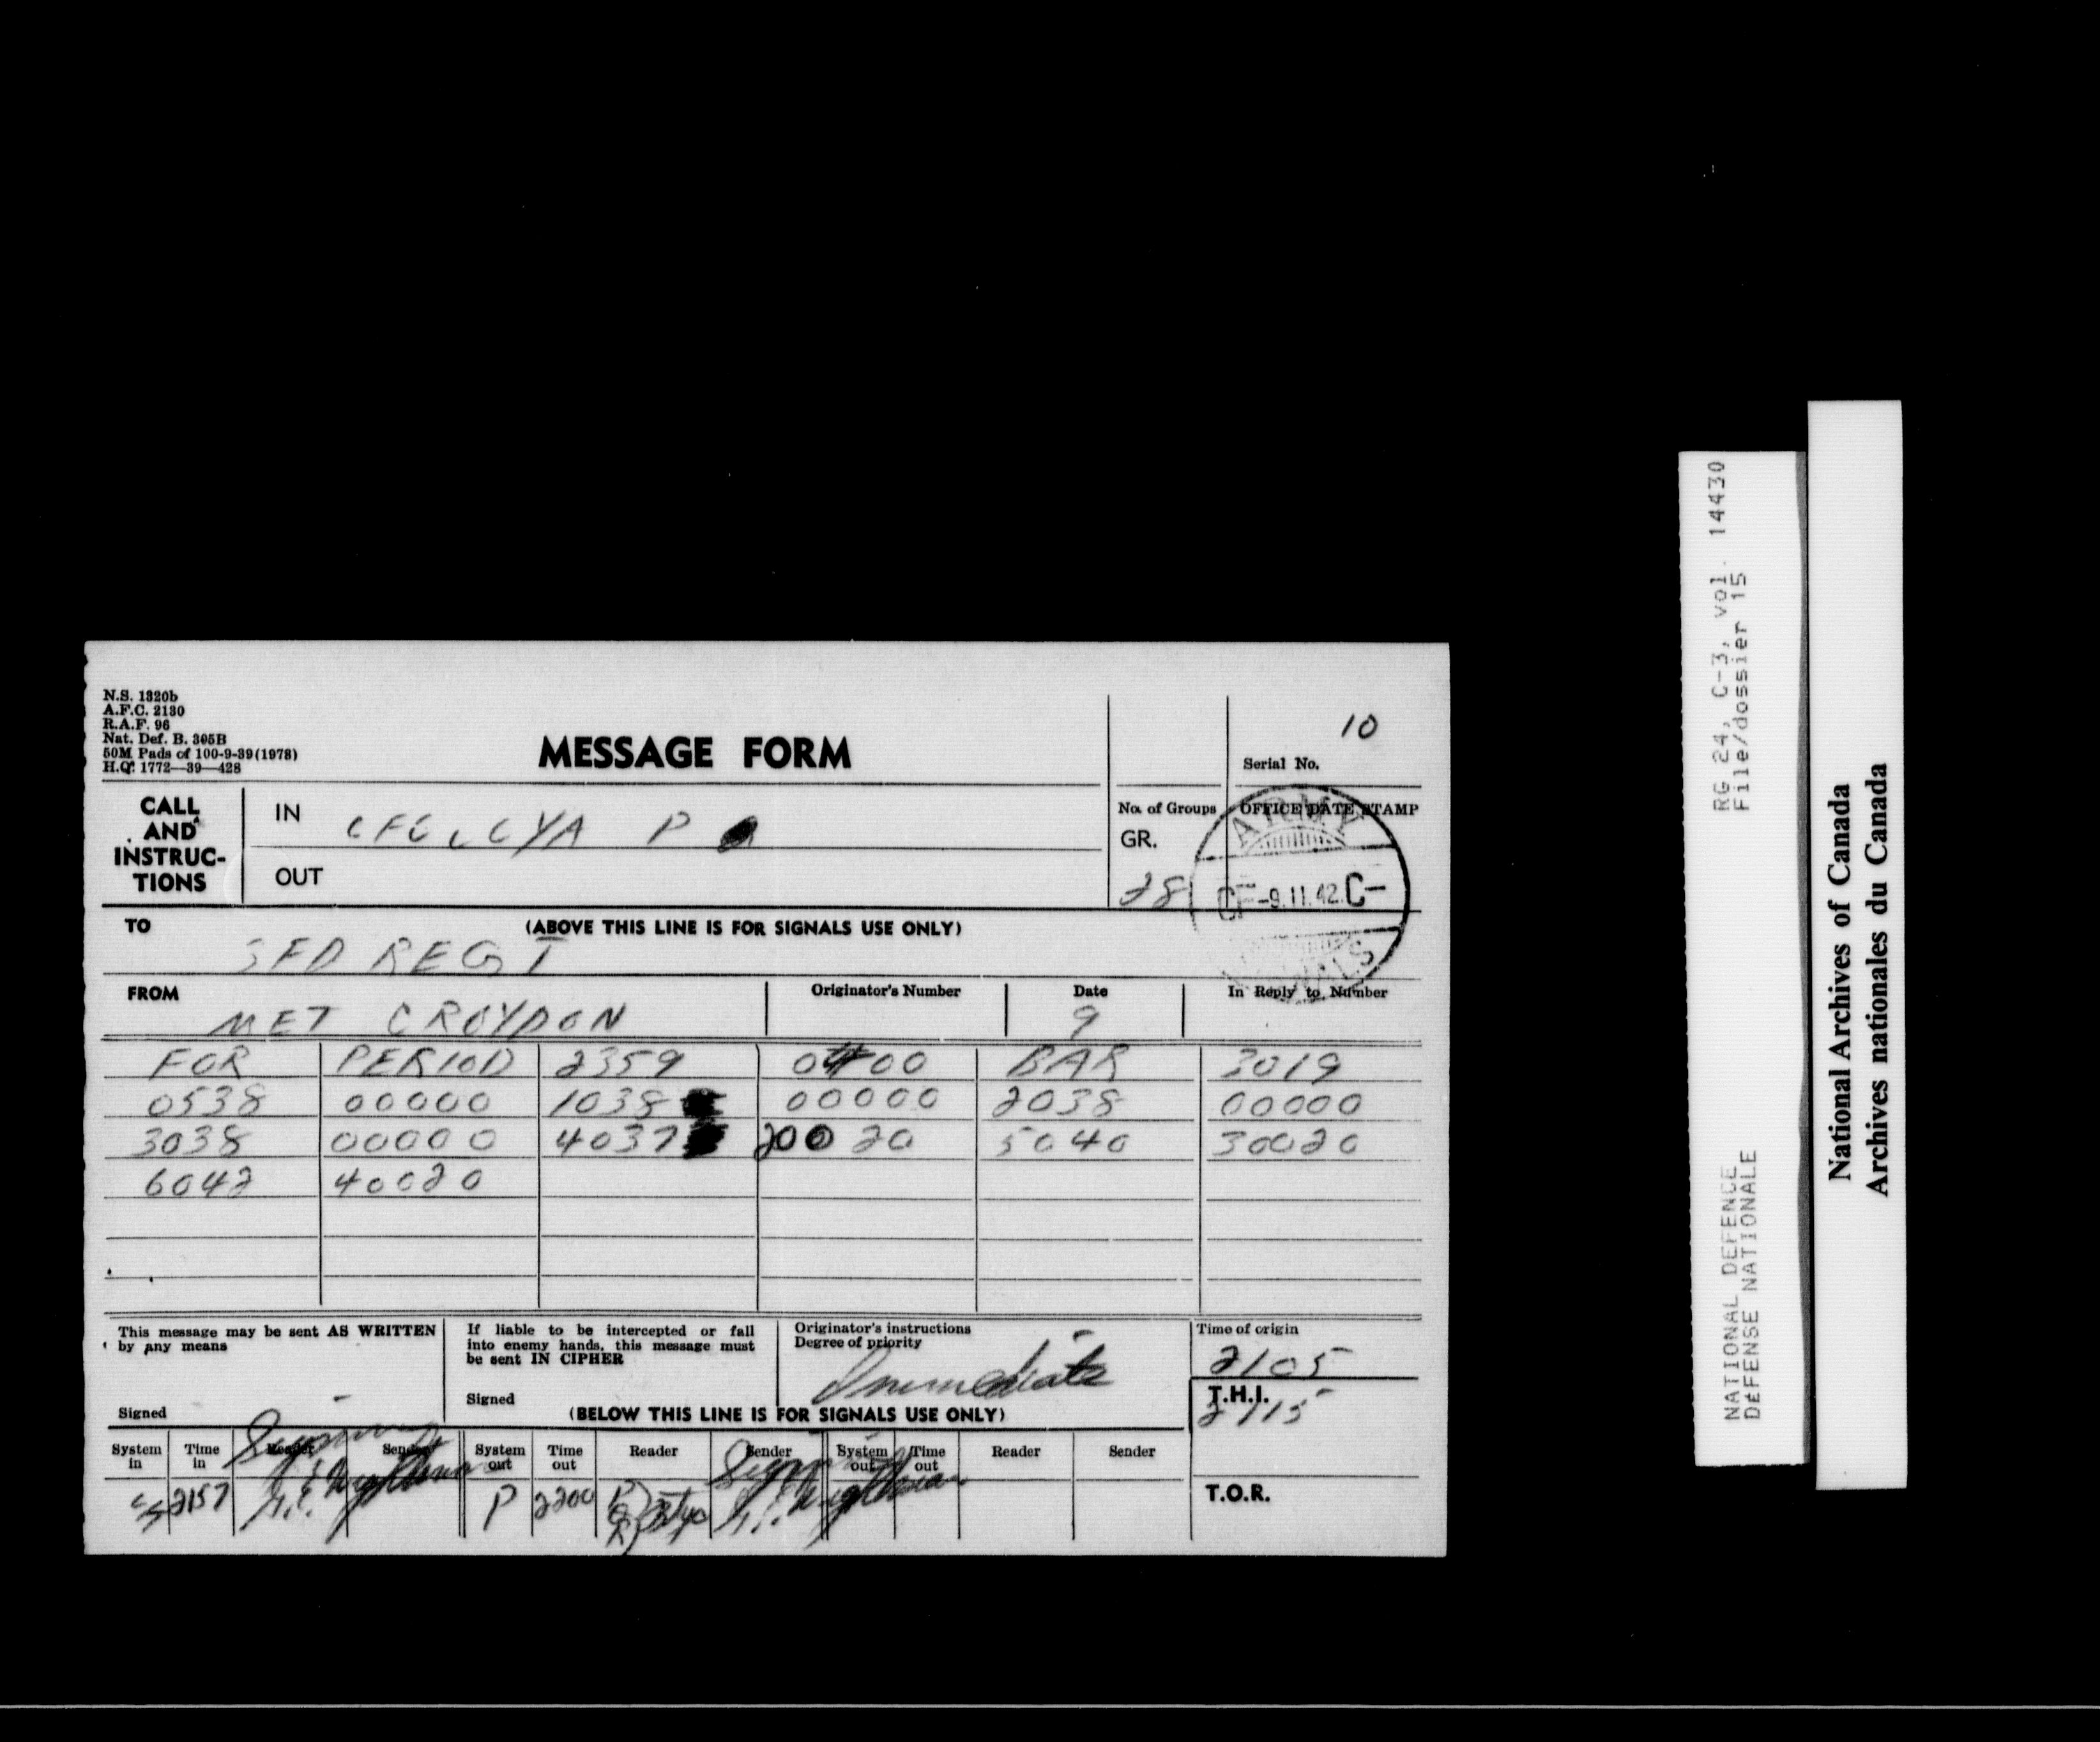 N.S. 1320b
A.F.C. 2130
R.A.F. 96
Nat. Def. B. 305B
50M Pads of 100-9-39(1978)
H.Q. 1772—39—428
MESSAGE FORM
10
Serial No.
CALL AND INSTRUC- TIONS
IN P
OUT
No. of Groups
GR.
28
OFFICE DATE STAMP
ARMY
CF -9.11.42. C-
SIGNALS
TO
(ABOVE THIS LINE IS FOR SIGNALS USE ONLY)
3FD REGT
FROM
Originator's Number
Date
In Reply to Number
MET CROYDON
9
FOR PERIOD 2359 0400 BAR 3019
0538 00000 1038 00000 2038 00000
3038 00000 4037 20020 5040 30020
6042 40020
This message may be sent AS WRITTEN
by any means
Signed
If liable to be intercepted or fall
into enemy hands, this message must
be sent IN CIPHER
Signed
Originator's instructions
Degree of priority
Immediate
Time of origin
2105
T.H.I.
2115
(BELOW THIS LINE IS FOR SIGNALS USE ONLY)
System in Time in Reader Sender System out Time out Reader Sender System out Time out Reader Sender
2157 P 2200
T.O.R.
RG 24, C-3, vol. 14430
File/dossier 15
NATIONAL DEFENCE
DÉFENSE NATIONALE
National Archives of Canada
Archives nationales du Canada